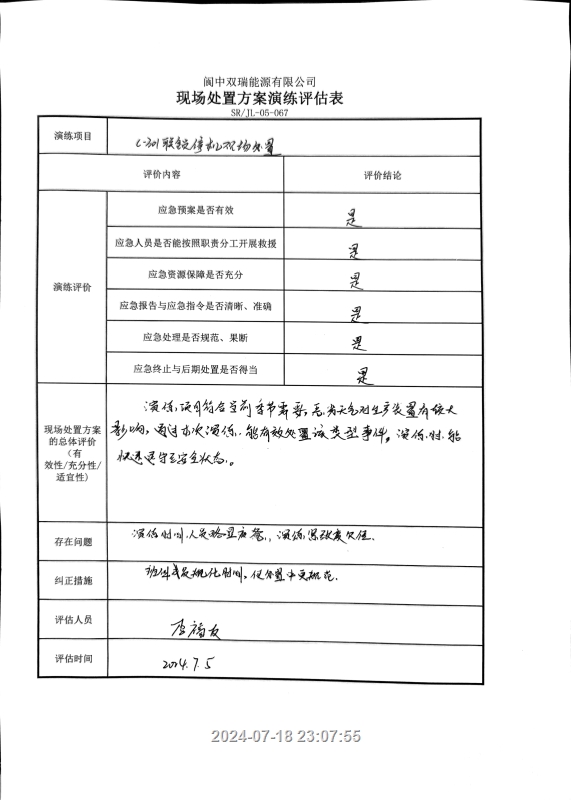 阆中双瑞能源有限公司
现场处置方案演练评估表
SR/JL-05-067
演练项目
C-301联锁停机现场处置
评价内容
评价结论
演练评价
应急预案是否有效
是
应急人员是否能按照职责分工开展救援
是
应急资源保障是否充分
是
应急报告与应急指令是否清晰、准确
是
应急处理是否规范、果断
是
应急终止与后期处置是否得当
是
现场处置方案
的总体评价
(有
效性/充分性/
适宜性)
演练项目符合当前季节需要,天气对生产装置有较大
影响,通过本次演练,能有效处置该类型事件。演练时,能
快速退守至安全状态。
存在问题
演练时间,人员略显,演练紧张度欠佳.
纠正措施
时间,处置中更规范.
评估人员
李福友
评估时间
2024.7.5
2024-07-18 23:07:55